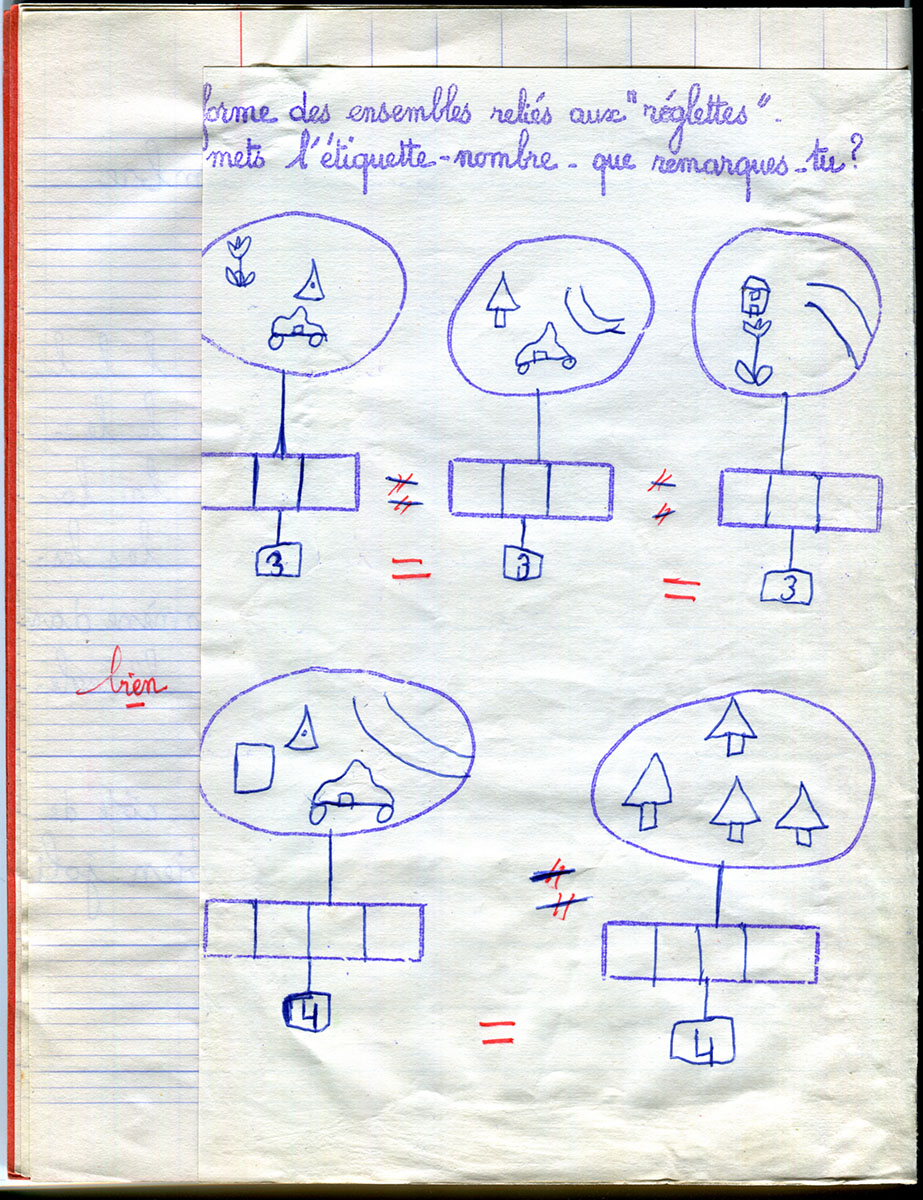 forme des ensembles reliés aux "réglettes".
mets l'étiquette-nombre - que remarques-tu?
3
=
3
=
3
bien
4
=
4